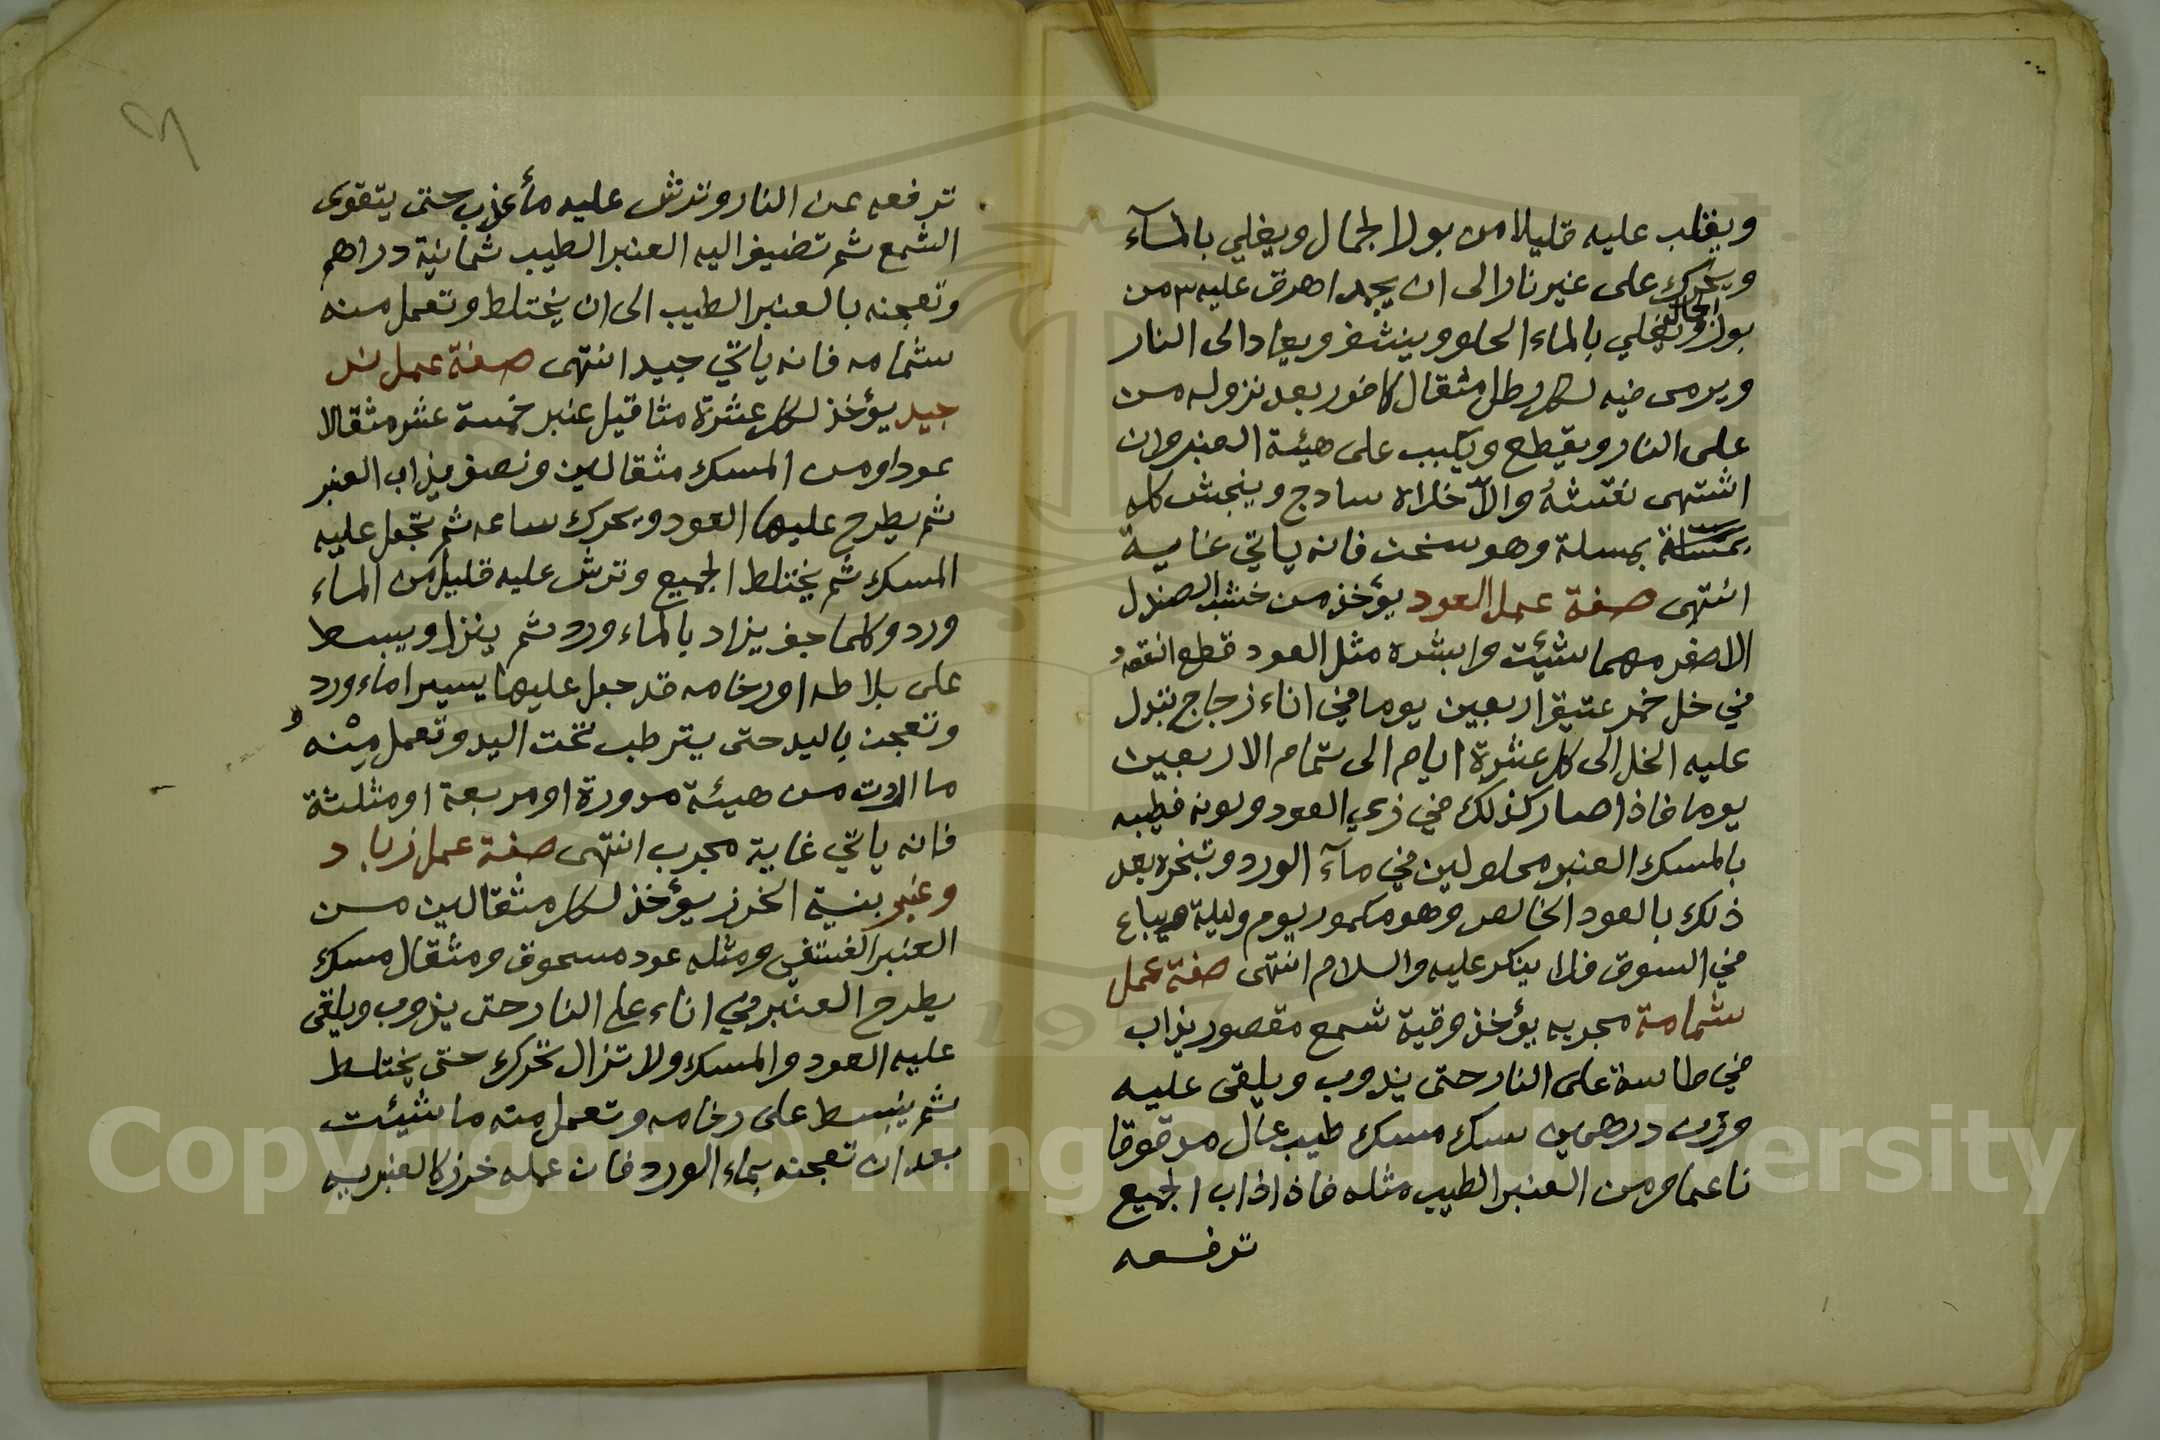 ويقلب عليه قليلا من بول الجمال ويغلي بالمآء
ويحرك على غير نار الى ان يجمد اهرق عليه ٣ من
بول الجمال ويغلي بالماء الحلو وينشف ويعاد الى النار
ويرمى فيه لكل رطل مثقال كافور بعد نزوله من
على النار ويقطع ويكبب على هيئة العنبر وان
اشتهى نقشه والا خلاه سادج وينجش كله
بمسلة بمسلة وهو سخن فانه ياتي غاية
انتهى صفة عمل العود يؤخذ من خشب الصندل
الاصفر مهما شئت وابشره مثل العود قطع انقعه
في خل خمر عتيق اربعين يوما في اناء زجاج تبدل
عليه الخل الى كل عشرة ايام الى تمام الاربعين
يوما فاذا صار كذلك في زي العود ولونه فطيبه
بالمسك العنبر محلولين في مآء الورد وتبخره بعد
ذلك بالعود الخالص وهو مكمور يوم وليلة ويباع
في السوق فلا ينكر عليه والسلام انتهى صفة عمل
شمامة مجربه يؤخذ وقية شمع مقصور يذاب
في طاسة على النار حتى يذوب ويلقى عليه
وزن درهمين سك مسك طيب عال مدقوقا
ناعما ومن العنبر الطيب مثله فاذا ذاب الجميع
ترفعه
ترفعه عن النار وترش عليه مأ عذب حتى يتقوى
الشمع ثم تضيف اليه العنبر الطيب ثمانية دراهم
وتعجنه بالعنبر الطيب الى ان يختلط وتعمل منه
شمامه فانه ياتي جيد انتهى صفة عمل ند
جيد يؤخذ لكل عشرة مثاقيل عنبر خمسة عشر مثقالا
عودا ومن المسك مثقالين ونصف يذاب العنبر
ثم يطرح عليها العود ويحرك ساعه ثم تجعل عليه
المسك ثم يختلط الجميع وترش عليه قليل من الماء
ورد وكلما جف يزاد بالماء ورد ثم ينزل ويبسط
على بلاطه او رخامه قد جعل عليها يسيرا ماء ورد
وتعجن باليد حتى يترطب تحت اليد وتعمل منه
ما اردت من هيئة مدورة او مربعة او مثلثة
فانه ياتي غاية مجرب انتهى صفة عمل زباد
وعنبر بنية الخرز يؤخذ لكل مثقالين من
العنبر الفستقي ومثله عود مسحوق ومثقال مسك
يطرح العنبر في اناء على النار حتى يذوب ويلقى
عليه العود والمسك ولا تزال تحركه حتى يختلط
ثم ينبسط على رخامه وتعمل منه ما شيئت
بعد ان تعجنه بماء الورد فان عمله خرز كالعنبريه
Copyright © King Saud University